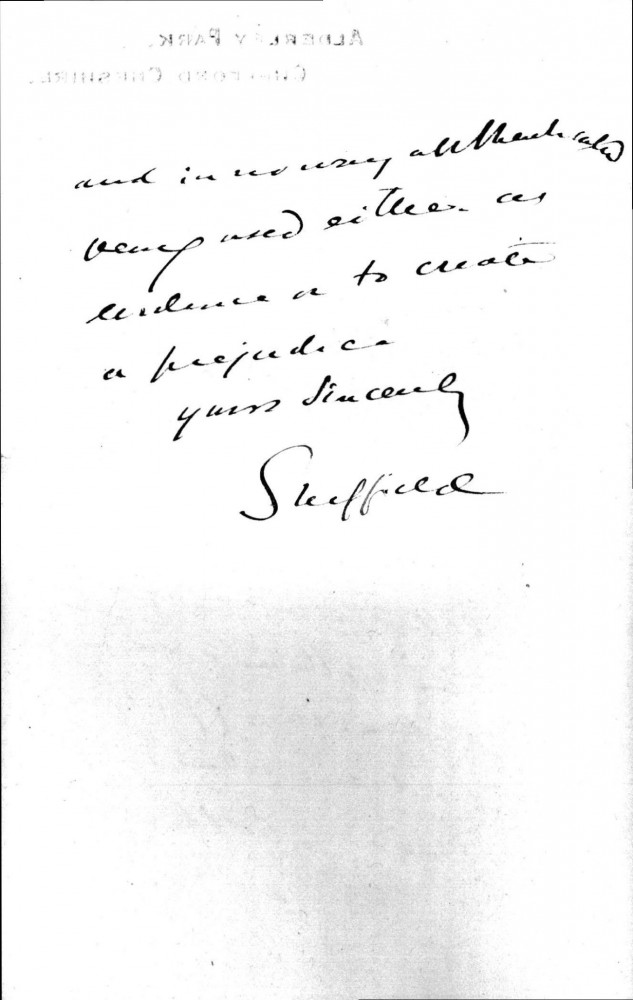 ALDERLEY PARK,
CHELFORD CHESHIRE.
and in no way authenticated
being used either as
evidence or to create
a prejudice
yours sincerely
Sheffield